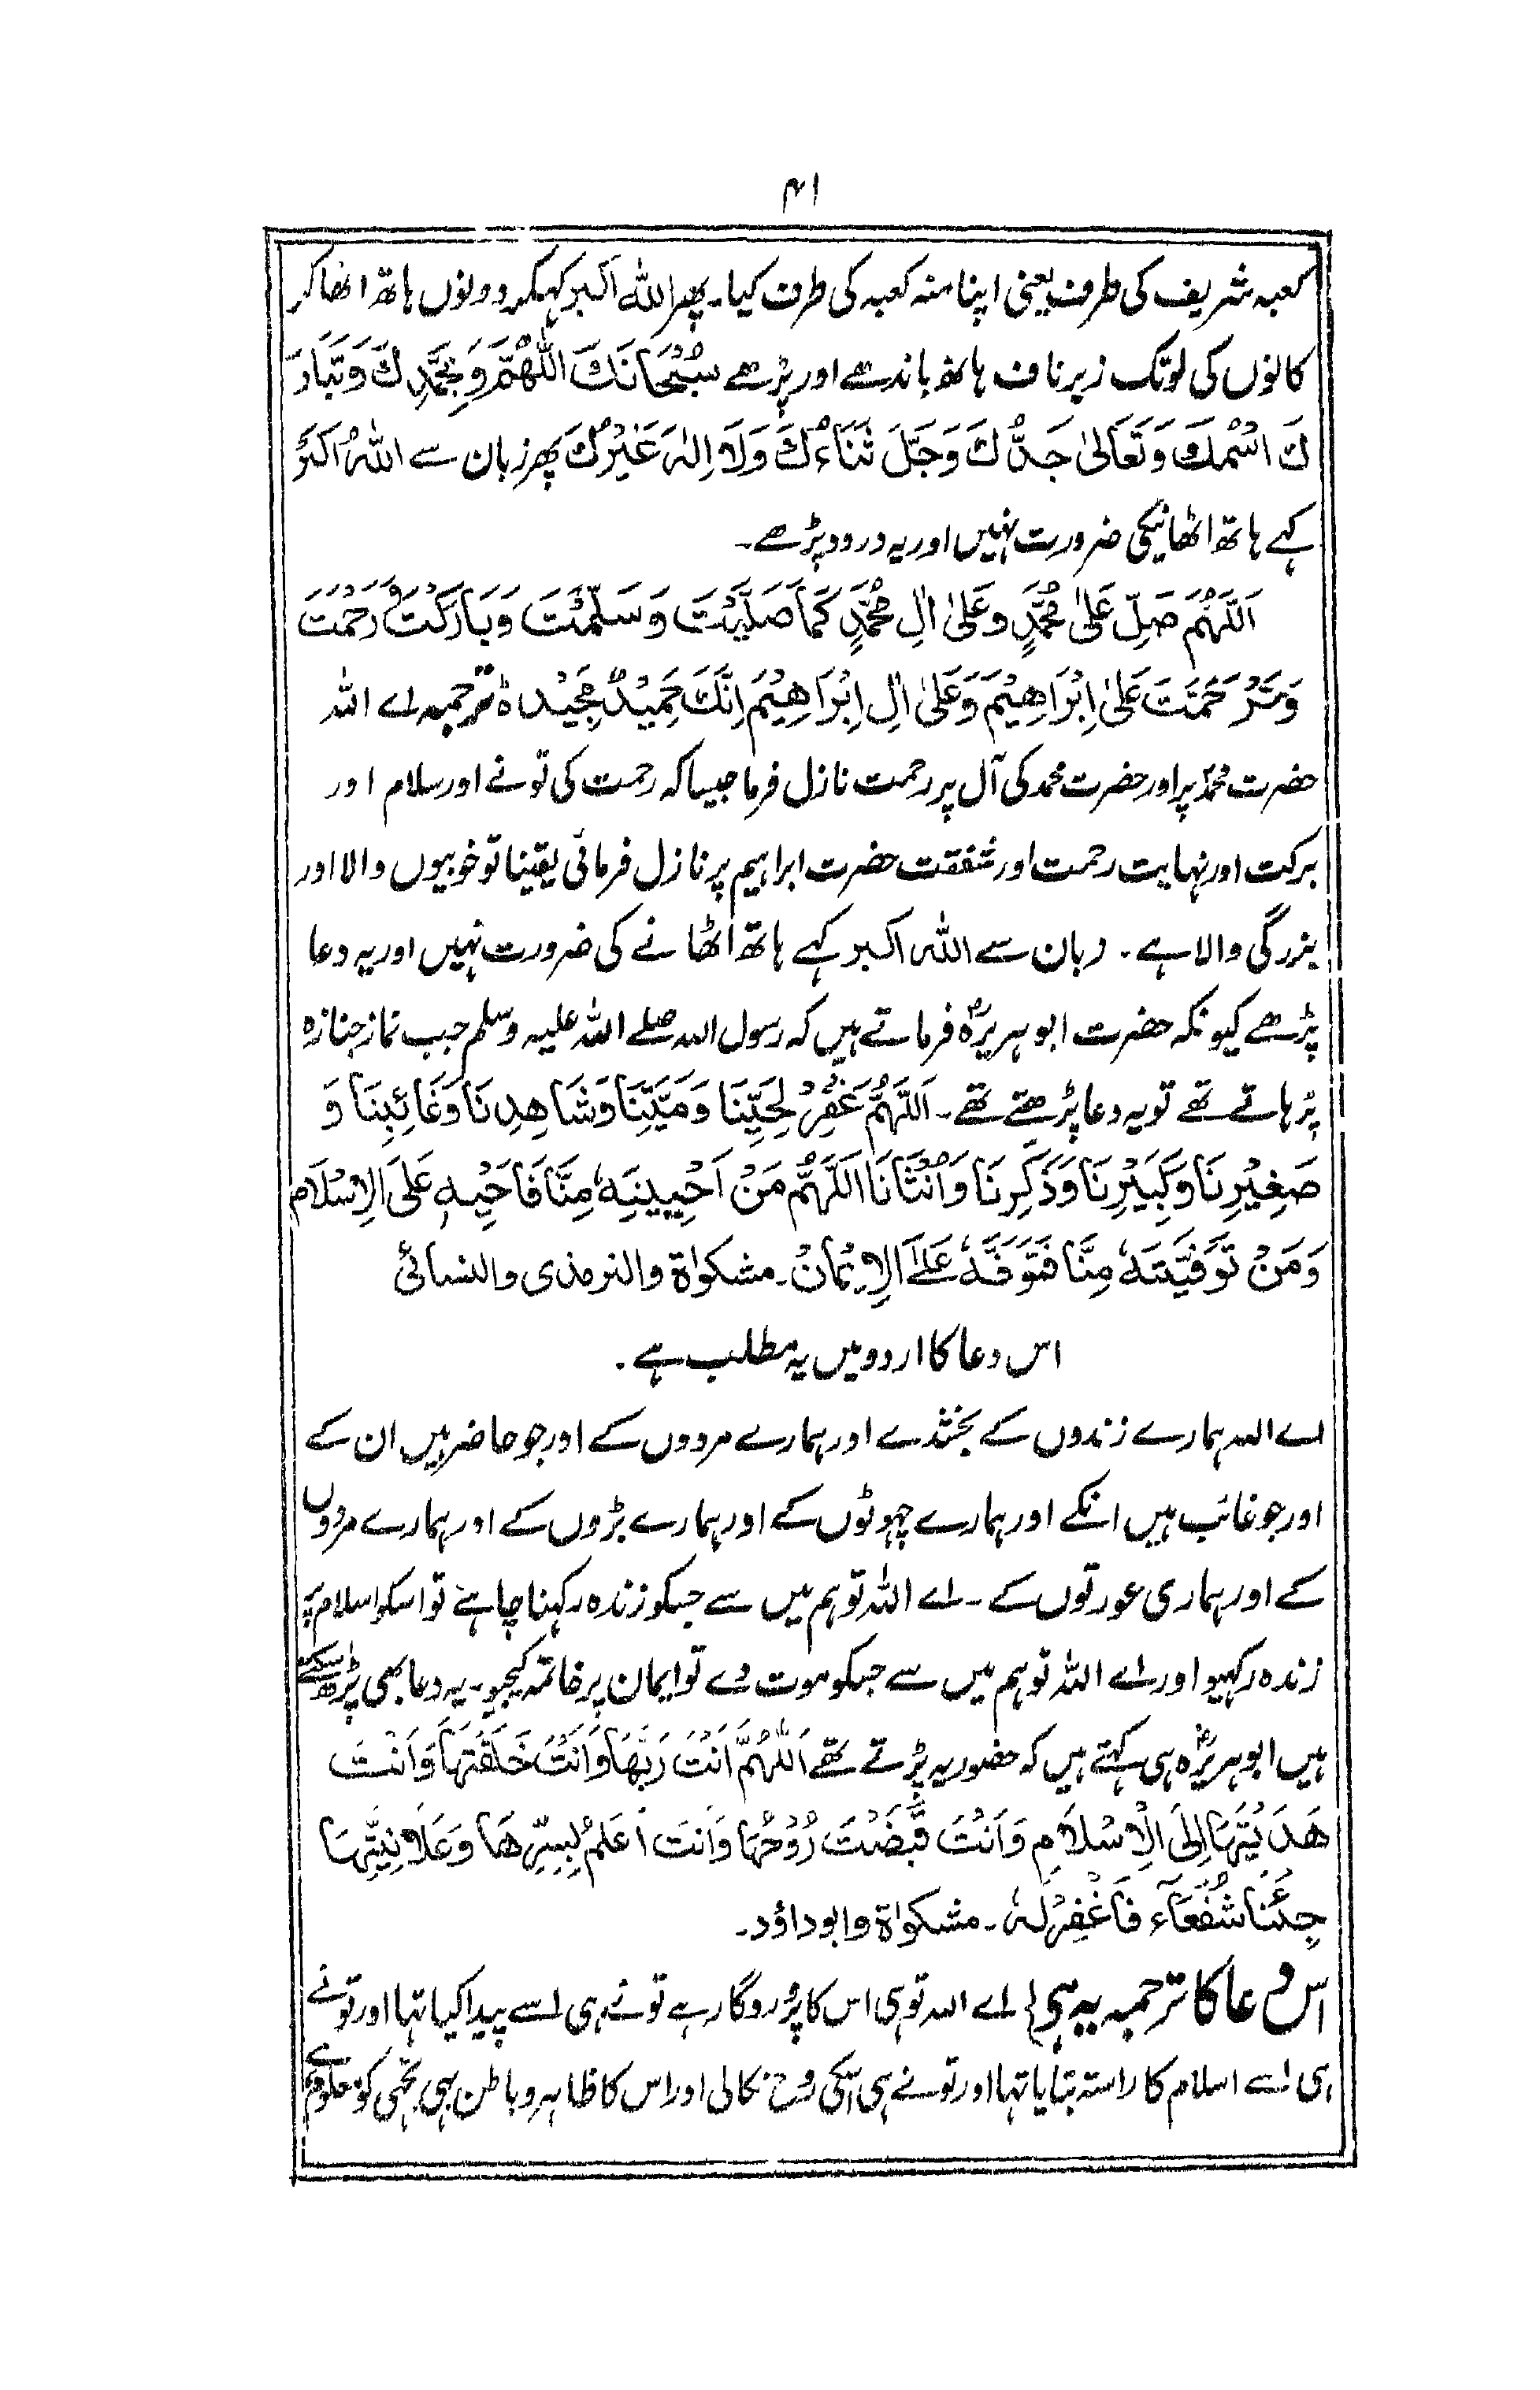 ۴۱
کعبہ شریف کی طرف یعنی اپنا منہ کعبہ کی طرف کیا۔ پھر اللہ اکبر کہکر دونوں ہاتھ اٹھا کر
کانوں کی لوتک زیر ناف ہاتھ باندھے اور پڑھے سُبْحَانَكَ اللّٰهُمَّ وَبِحَمْدِكَ وَتَبَارَ
كَ اسْمُكَ وَتَعَالىٰ جَدُّكَ وَجَلَّ ثَنَاءُكَ وَلَا اِلٰهَ غَيْرُكَ پھر زبان سے اللّٰهُ اَكْبَرْ
کہے ہاتھ اٹھانیکی ضرورت نہیں اور یہ درود پڑھے۔
اَللّٰهُمَّ صَلِّ عَلىٰ مُحَمَّدٍ وعَلىٰ اٰلِ مُحَمَّدٍ كَمَا صَلَّيْتَ وَسَلَّمْتَ وَبَارَكْتَ وَرَحِمْتَ
وَتَرَحَّمْتَ عَلىٰ اِبْرَاهِيْمَ وَعَلىٰ اٰلِ اِبْرَاهِيْمَ اِنَّكَ حَمِيْدٌ مَجِيْدٌ ہ ترجمہ اے اللہ
حضرت محمدؐ پر اور حضرت محمد کی آل پر رحمت نازل فرما جیسا کہ رحمت کی تو نے اور سلام اور
برکت اور نہایت رحمت اور شفقت حضرت ابراہیم پر نازل فرمائی یقینا تو خوبیوں والا اور
بزرگی والا ہے۔ زبان سے اللہ اکبر کہے ہاتھ اٹھانے کی ضرورت نہیں اور یہ دعا
پڑھے کیونکہ حضرت ابوہریرہؓ فرماتے ہیں کہ رسول اللہ صلے اللہ علیہ وسلم جب نماز جنازہ
پڑہاتے تھے تو یہ دعا پڑھتے تھے۔ اَللّٰهُمَّ غْفِرْ لِحَيِّنَا وَمَيِّتِنَا وَشَاهِدِنَا وَغَائِبِنَا وَ
صَغِيْرِنَا وَكَبِيْرِنَا وَذَكَرِنَا وَاُنْثَانَا اَللّٰهُمَّ مَنْ اَحْيِيْتَهٗ مِنَّا فَاَحْيِهٖ عَلَى الِاسْلَامِ
وَمَنْ تَوَفَّيْتَهٗ مِنَّا فَتَوَفَّهٗ عَلَے الِايْمَانْ۔ مشکواۃ والترمذی والنسائی
اس دعا کا اردو میں یہ مطلب ہے۔
اے اللہ ہمارے زندوں کے بخشدے اور ہمارے مردوں کے اور جو حاضر ہیں ان کے
اور جو غائب ہیں انکے اور ہمارے چہوٹوں کے اور ہمارے بڑوں کے اور ہمارے مردوں
کے اور ہماری عورتوں کے۔ اے اللہ تو ہم میں سے جسکو زندہ رکہنا چاہے تو اسکو اسلام پر
زندہ رکہیو اور اے اللہ تو ہم میں سے جسکو موت دے تو ایمان پر خاتمہ کیجیو۔ یہ دعا بھی پڑھ سکتے
ہیں ابوہریرہؓ ہی کہتے ہیں کہ حضور یہ پڑتے تھے اَللّٰهُمَّ اَنْتَ رَبُّهَا وَاَنْتَ خَلَقْتَهَا وَاَنْتَ
هَدَيْتَهَا اِلَى الْاِسْلَامِ وَاَنْتَ قَبَضْتَ رُوْحَهَا وَاَنْتَ اَعْلَمُ بِسِرِّهَا وَعَلَانِيَتِهَا
جِئْنَا شُفَعَآءَ فَاغْفِرْلَهٗ۔ مشکواۃ وابوداؤد۔
اس دعا کا ترجمہ یہ ہی اے اللہ تو ہی اس کا پروردگار ہے تو نے ہی اسے پیدا کیا تہا اور تو نے
ہی اسے اسلام کا راستہ بتایا تہا اور تو نے ہی اسکی روح نکالی اور اس کا ظاہر و باطن بہی تجہی کو معلوم ہے